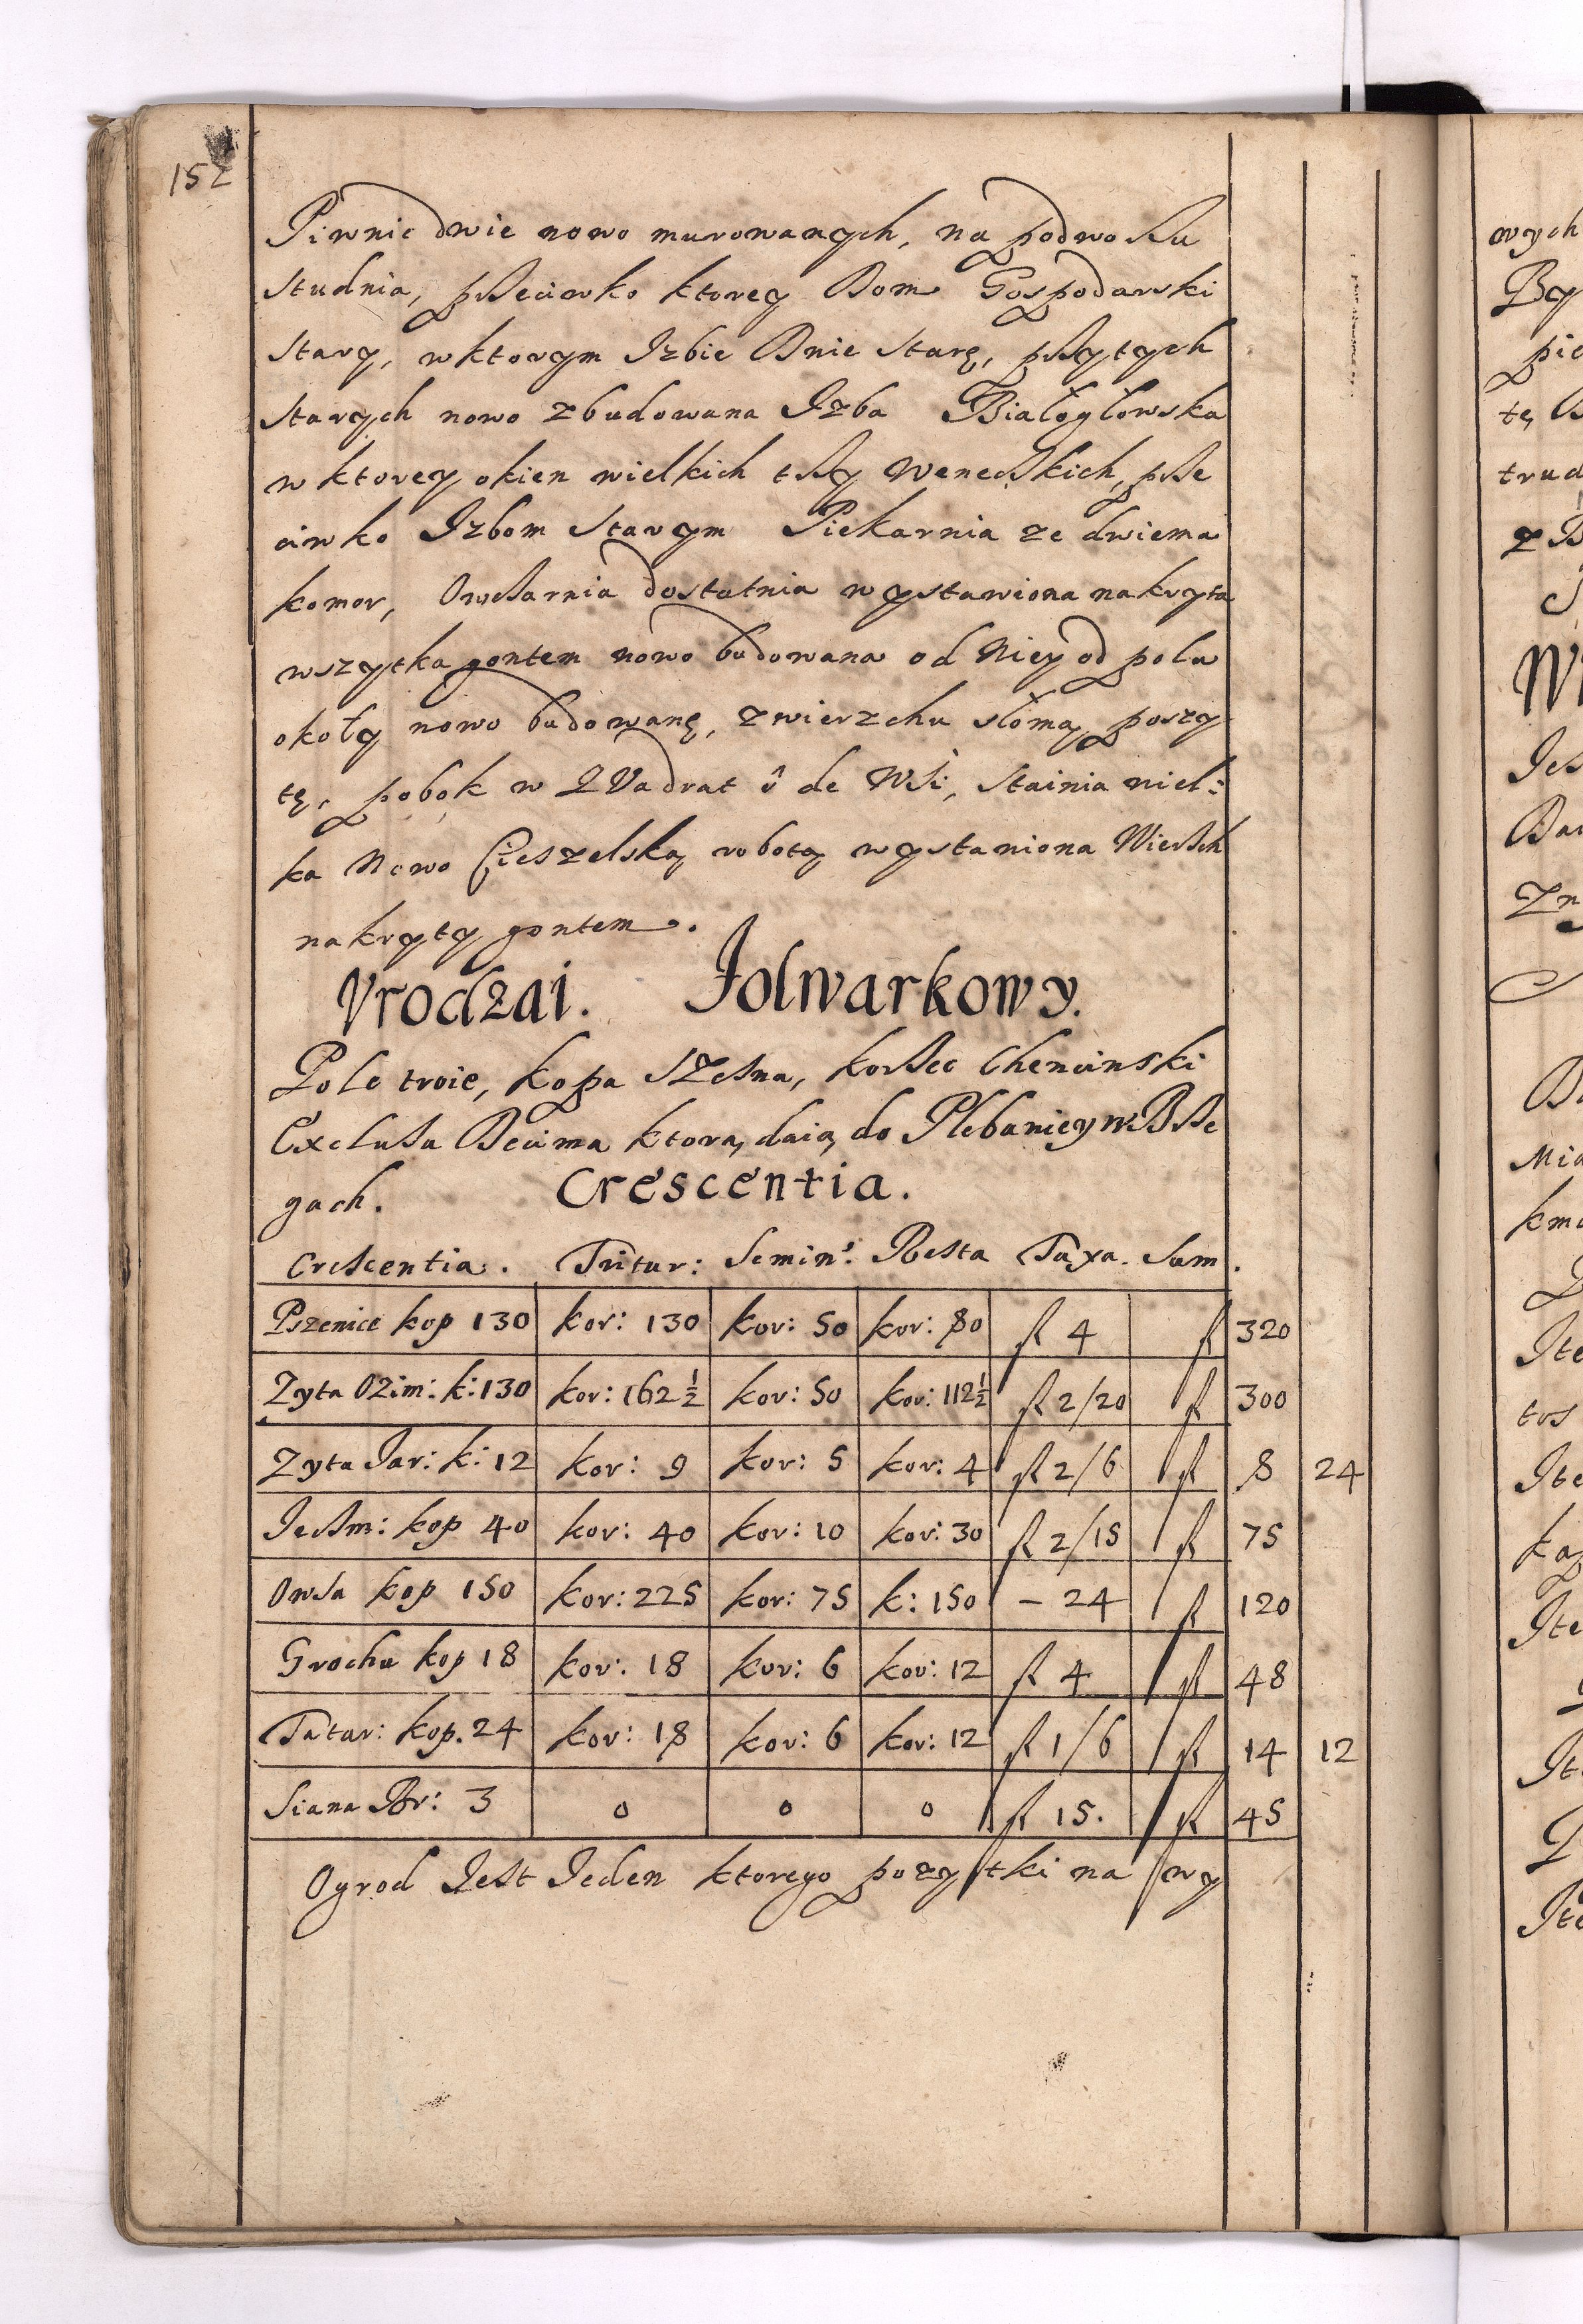 152
Piwnic dwie nowo murowanych, na podworzu
studnia, przeciwko ktorey Dom Gospodarski
stary, w ktorym Izbie Dwie stare, przy tych
starych nowo zbudowana Izba Białogłowska
w ktorey okien wielkich trzy Weneckich, prze
ciwko Izbom starym Piekarnia ze dwiema
komor, Owczarnia dostatnia wystawiona nakryta
wszytka gontem nowo budowana od Niey od pola
okoły nowo budowane, zwierzchu słomą poszy
te, pobok w QVadrat de Wsi, Stainia wiel:
ka Nowo Cieszelską robotą wystawiona Wierzch
nakryty gontem.
Vrodzai. Folwarkowy.
Pole troie, kopa szesna, korzec Chencinski
Exclusa Decima ktorą daią do Plebaniey w Brze
gach. Crescentia.
Crescentia. Tritur: Semin: Resta Taxa. Sum.
Pszenice kop 130 kor: 130 kor: 50 kor: 80 fl 4 fl 320
Zyta Ozim: k: 130 kor: 162½ kor: 50 kor: 112½ fl 2/20 fl 300
Zyta Jar: k: 12 kor: 9 kor: 5 kor: 4 fl 2/6 fl 8 24
Jeczm: kop 40 kor: 40 kor: 10 kor: 30 fl 2/15 fl 75
Owsa kop 150 kor: 225 kor: 75 k: 150 – 24 fl 120
Grochu kop 18 kor: 18 kor: 6 kor: 12 fl 4 fl 48
Tatar: kop. 24 kor: 18 kor: 6 kor: 12 fl 1/6 fl 14 12
Siana Br: 3 0 0 0 fl 15. fl 45
Ogrod Jest Jeden ktorego pozytki na wy